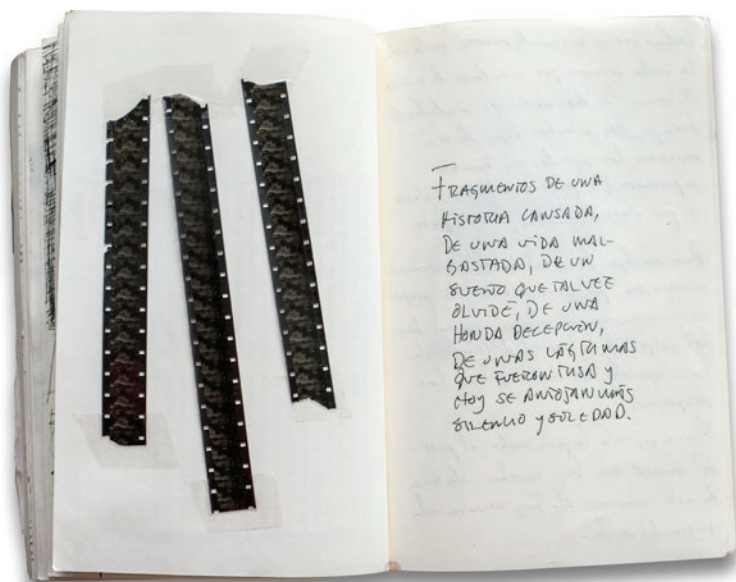 FRAGMENTOS DE UNA
HISTORIA CANSADA,
DE UNA VIDA MAL-
GASTADA, DE UN
SUEÑO QUE TAL VEZ
OLVIDÉ, DE UNA
HONDA DECEPCIÓN,
DE UNAS LÁGRIMAS
QUE FUERON RISA Y
HOY SE ANTOJAN MÁS
SILENCIO Y SOLEDAD.